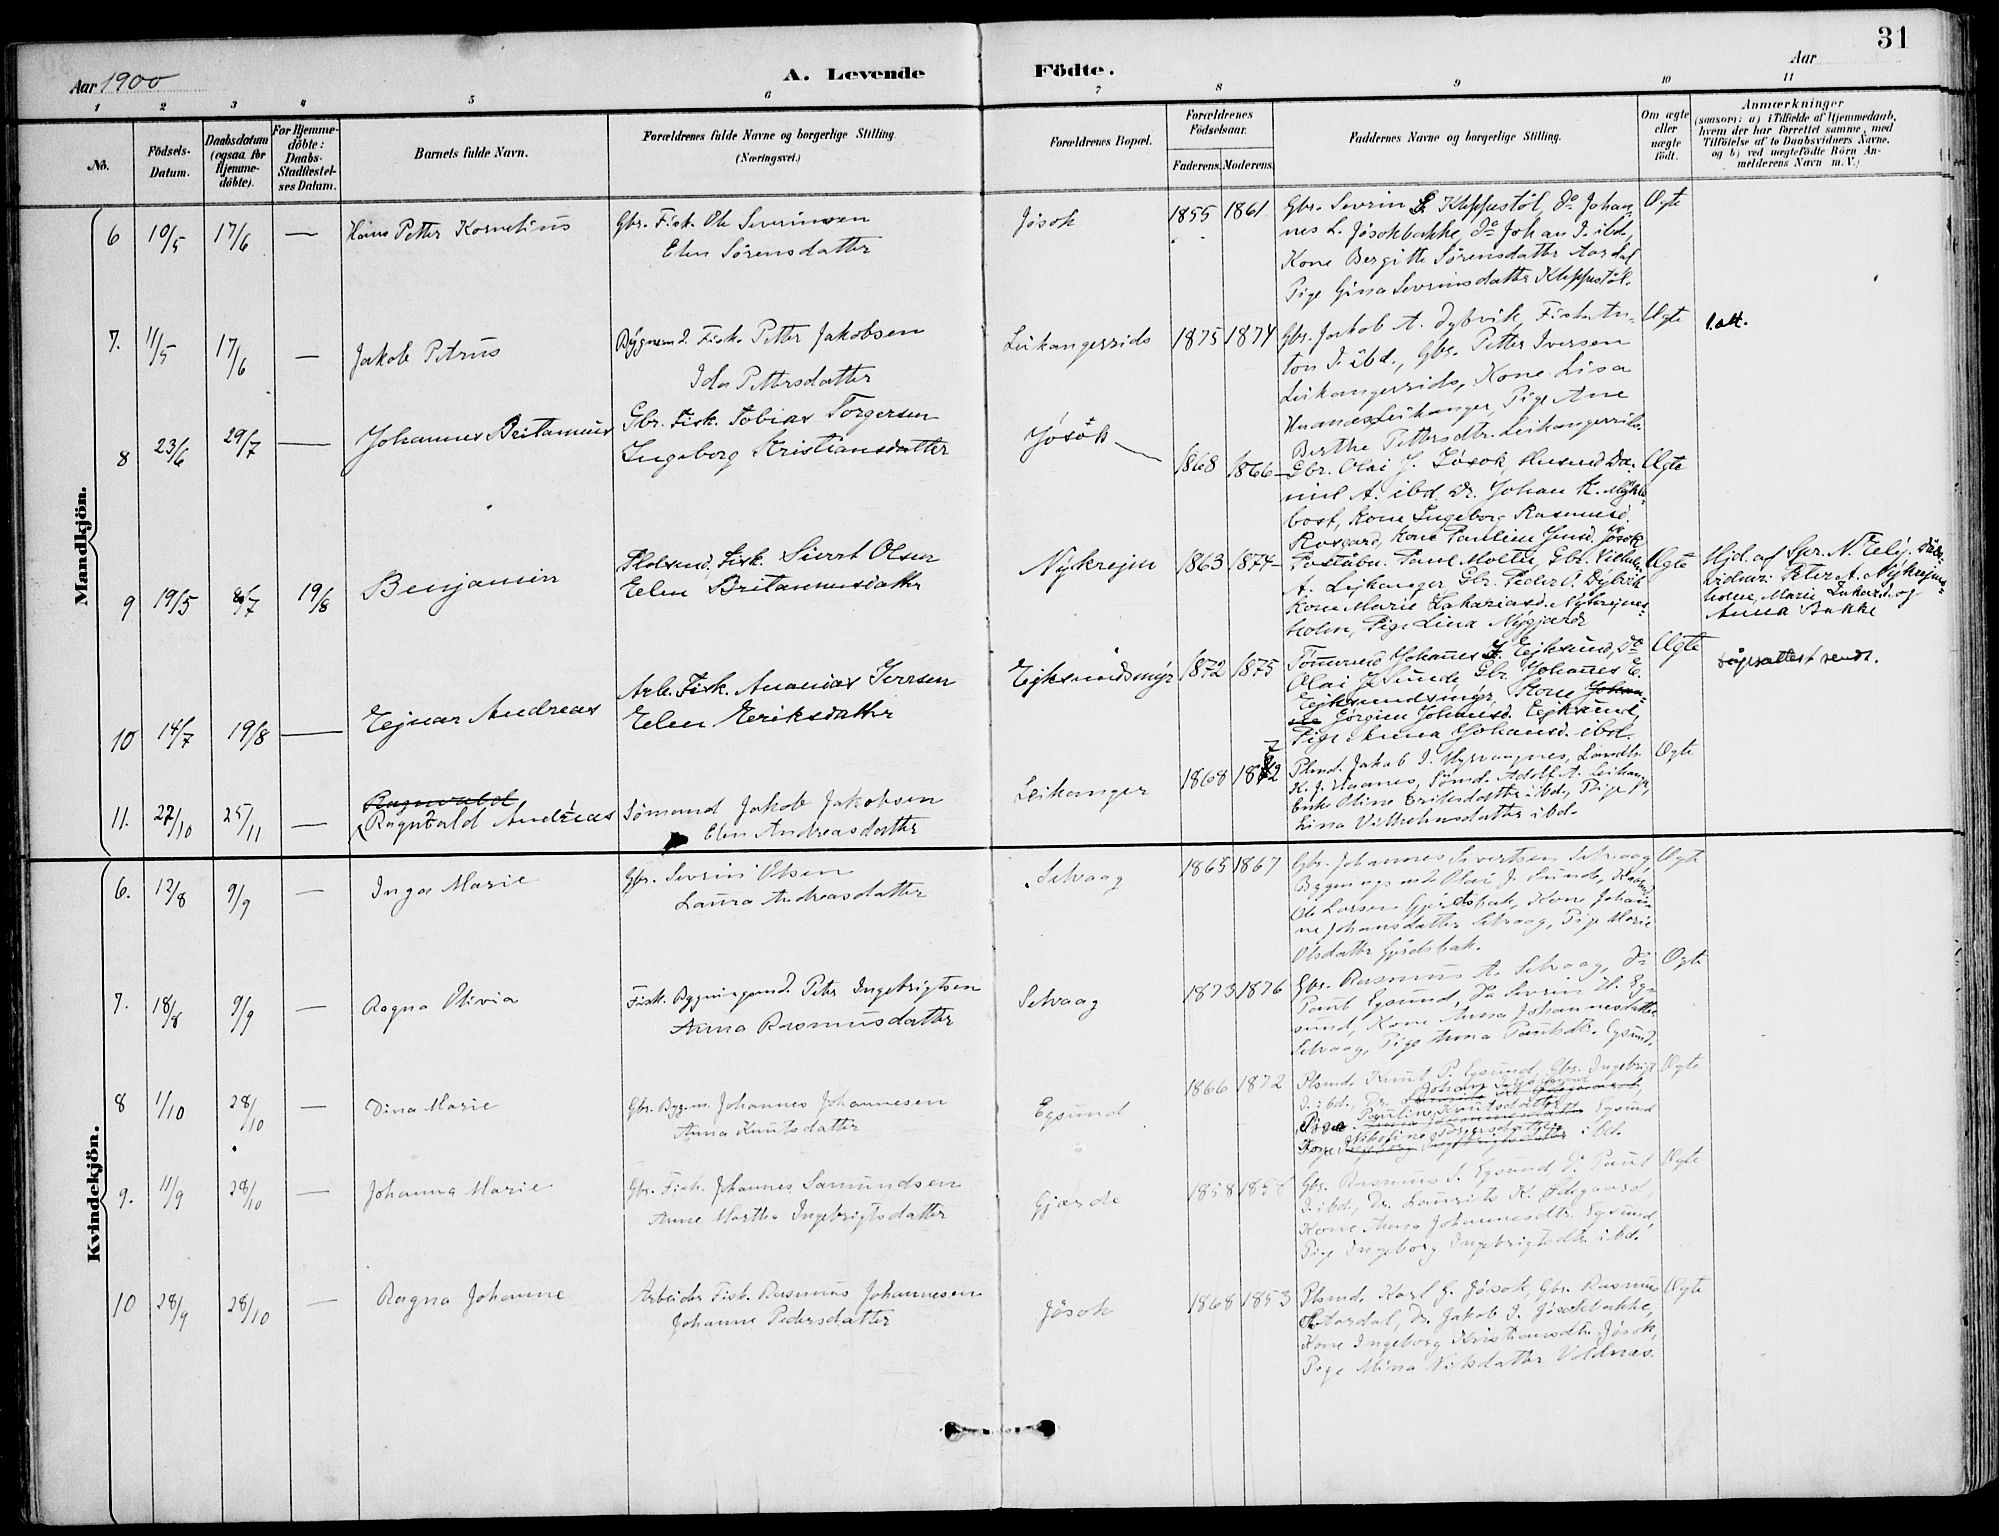 31
Aar 1900
A. Levende Födte.
Aar
1 2 3 4 5 6 7 8 9 10 11
No.
Födsels-Datum.
Daabsdatum (ogsaa for Hjemme-döbte).
For Hjemme-döbte: Daabs-Stadfæstel-ses Datum.
Barnets fulde Navn.
Forældrenes fulde Navne og borgerlige Stilling
(Næringsvei.)
Forældrenes Bopæl.
Forældrenes Födselsaar.
Faderens. Moderens.
Faddernes Navne og borgerlige Stilling.
Om ægte eller uægte födt.
Anmærkninger
(saasom: a) i Tilfælde af Hjemmedaab,
hvem der har forrettet samme, med
Tilföielse af to Daabsvidners Navne.
og b) ved uægtefödte Börn An-
melderens Navn m. V.)
Mandkjön.
6 10/5 17/6 — Hans Petter Kornelius
Gbr. Fisk. Ole Severinsen
Elen Sörensdatter
Jösok 1855 1861
Gbr. Sevrin Kleppestöl, do Johan-
nes L. Jösokbakke, do Johan J. ibd.,
Kone Bergitte Sörensdatter Aardal
Pige Gina Sevrinsdatter Kleppestöl.
Ægte
7. 11/5 17/6 — Jakob Petrus
Bygnmd. Fisk. Petter Jakobsen
Ida Pettersdatter
Leikangerzids 1875 1874
Gbr. Jakob A. Dybvik, Fisk. An-
ton J. ibd., Gbr. Petter Iversen
Leikangerzids, Kone Lisa
Haanæs Leikanger, Pige Ane
Berthe Pettersdtr. Leikangerzids
Ægte
8 23/6 29/7 — Johannes Britanius
Gbr. Fisk. Tobias Torgersen
Ingeborg Kristiansdatter
Jösok 1868 1866
Gbr. Olai J. Jösok, Husmd Da-
niel A. ibd. Dr. Johan K. Mykle-
bost, Kone Ingeborg Rasmusd.
Ægte
9 19/5 8/7 19/8 Benjamin
Pladsmd. Fisk. Sivert Olsen
Elen Britanusdatter
Nykrejm 1863 1874
A. Leikanger Gbr. Peder O. Dybvik
Kone Marie Zakariasd. Nykrejms-
holm, Pige Lina Nygjærde
Ægte
Hjd. af
vidner: Peter A. Nykrejms-
holm, Marie Zakard. og
Anna Bakke
10 14/7 19/8 — Ejnar Andreas
Arb. Fisk. Ananias Iversen
Elen Eriksdatter
Ejksundsmyr 1872 1875
Tömmermd Johanes J. Ejksund, do
Olai J. Sunde, Gbr. Johanes E.
Ejksundsmyr, Kone
Jörgine Johansd. Ejksund,
Pige Anna Johansd. ibd.
Ægte
11. 27/10 25/11 — Ragnvald
Ragnvald Andreas
Sömand Jakob Jakobsen
Elen Andreasdatter
Leikanger 1868 1872
Plmd. Jakob J. Myrvaagnes, Landh.
K. J. Haanes, Sömd. Adolf A. Leikanger,
Enke Oline Eriksdatter ibd., Pige
Lina Vilhelmsdatter ibd.
Ægte
Kvindekjön.
6. 12/8 9/9 — Inga Marie
Gbr. Sevrin Olsen
Laura Andreasdatter
Selvaag 1865 1867
Gbr. Johannes Sivertsen Selvaag
Bygningsmd. Olai J. Sunde,
Ole Larsen Gjerdsbak, Kone Johan-
ne Johansdatter Selvaag, Pige Marie
Olsdatter Gjerdsbak.
Ægte
7. 18/8 9/9 — Ragna Olivia
Fisk. Bygningsmd. Peter Ingebrigtsen
Anna Rasmusdatter
Selvaag 1873 1876
Gbr. Rasmus A. Selvaag, do
Paul Egsund, do Severin H. Eg-
sund, Kone Anna Johannesdatter
Selvaag, Pige Anna Paulsdtr. Egsund.
Ægte
8 1/10 28/10 — Dina Marie
Gbr. Bygm. Johannes Johannesen
Anna Knutsdatter
Egsund 1866 1872
Plsmd. Knut P. Egsund, Gbr. Ingebrigt
J. ibd., Dr.
Pauline Knutsdatter Egsund
ibd.
Ægte
9. 11/9 28/10 — Johanna Marie
Gbr. Fisk. Johannes Samundsen
Anne Martha Ingebrigtsdatter
Gjærde 1858
Gbr. Rasmus J. Egsund do Paul
J. ibd., Dr. Laurits K. Ödegaard,
Kone Anna Johannesdtr. Egsund,
Pige Ingeborg Ingebrigtsdtr. ibd.
Ægte
10 28/9 28/10 — Ragna Johanne
Arbeider Fisk. Rasmus Johannesen
Johanne Pedersdatter
Jösok 1868 1853
Plsmd. Karl G. Jösok, Gbr. Rasmus
Aardal, Dr. Jakob J. Jösokbakke,
Kone Ingeborg Kristiansdtr. Jösok,
Pige Mina Nilsdatter Voldnæs.
Ægte